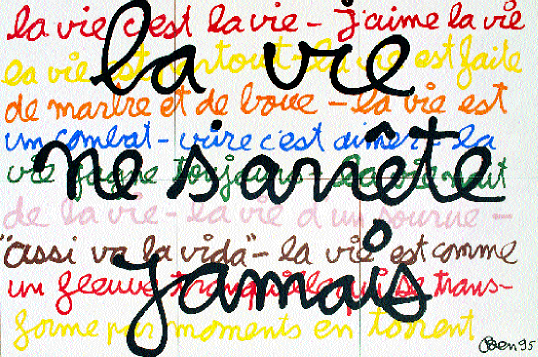 la vie
ne s'arrête
jamais
la vie c'est la vie - j'aime la vie
la vie est partout - la vie est faite
de marbre et de boue - la vie est
un combat - vivre c'est aimer - la
vie gagne toujours - la vie naît
de la vie - la vie d'un sourire -
"assi va la vida" - la vie est comme
un fleuve tranquille qui se trans-
forme par moments en torrent
Ben 95